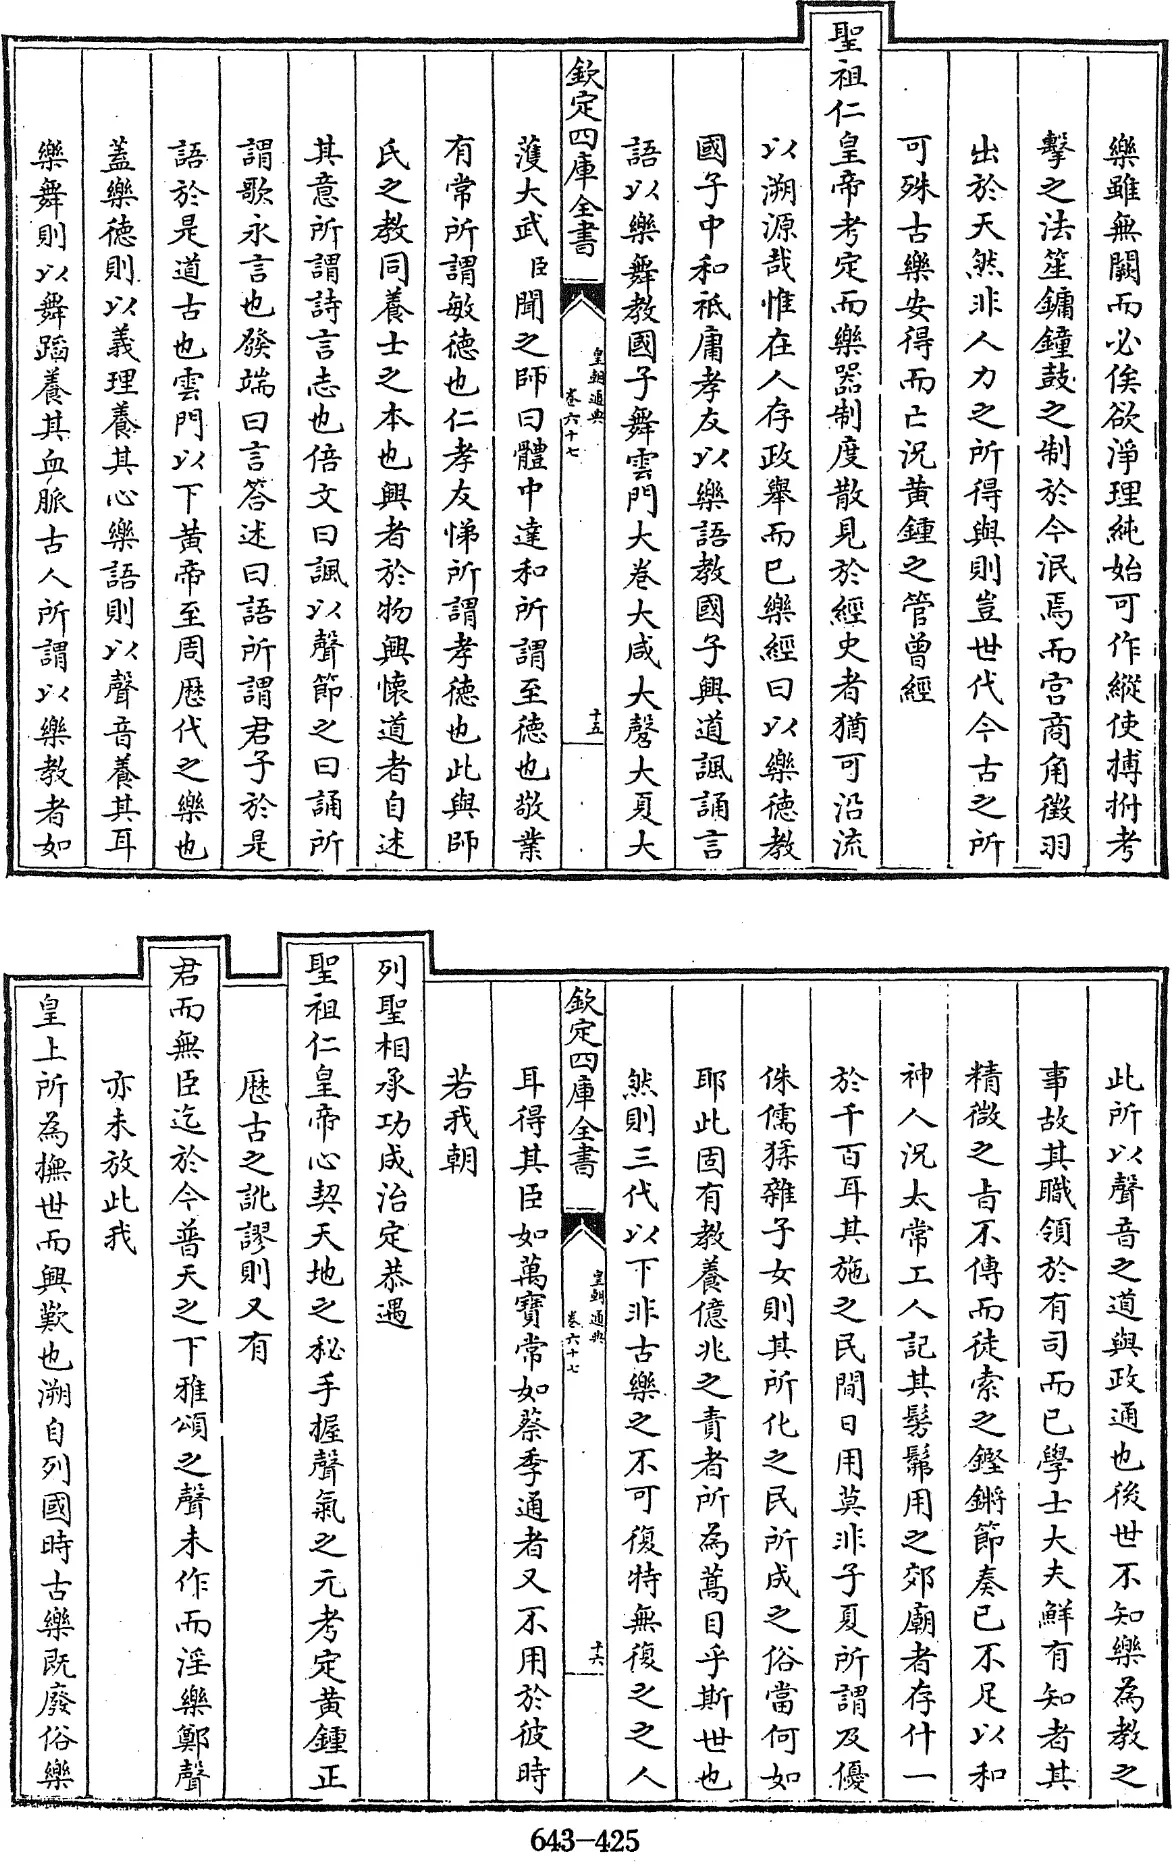 樂雖無闕而必俟欲淨理純始可作縱使搏拊考
擊之法笙鏞鐘鼓之制於今泯焉而宫商角徵羽
出於天然非人力之所得與則豈世代今古之所
可殊古樂安得而亡況黄鍾之管曾經
聖祖仁皇帝考定而樂器制度散見於經史者猶可沿流
以溯源哉惟在人存政舉而已樂經曰以樂德教
國子中和祇庸孝友以樂語教國子興道諷誦言
語以樂舞教國子舞雲門大卷大咸大磬大夏大
欽定四庫全書
皇朝通典
卷六十七
十五
濩大武臣聞之師曰體中達和所謂至德也敬業
有常所謂敏德也仁孝友悌所謂孝德也此與師
氏之教同養士之本也興者於物興懷道者自述
其意所謂詩言志也倍文曰諷以聲節之曰誦所
謂歌永言也發端曰言答述曰語所謂君子於是
語於是道古也雲門以下黄帝至周歴代之樂也
蓋樂德則以義理養其心樂語則以聲音養其耳
樂舞則以舞蹈養其血脈古人所謂以樂教者如
此所以聲音之道與政通也後世不知樂為教之
事故其職領於有司而已學士大夫鮮有知者其
精微之旨不傳而徒索之鏗鏘節奏已不足以和
神人況太常工人記其髣髴用之郊廟者存什一
於千百耳其施之民間日用莫非子夏所謂及優
侏儒猱雜子女則其所化之民所成之俗當何如
耶此固有教養億兆之責者所為蒿目乎斯世也
然則三代以下非古樂之不可復特無復之之人
欽定四庫全書
皇朝通典
卷六十七
十六
耳得其臣如萬寶常如蔡季通者又不用於彼時
若我朝
列聖相承功成治定恭遇
聖祖仁皇帝心契天地之秘手握聲氣之元考定黄鍾正
歴古之訛謬則又有
君而無臣迄於今普天之下雅頌之聲未作而淫樂鄭聲
亦未放此我
皇上所為撫世而興歎也溯自列國時古樂既廢俗樂
643-425